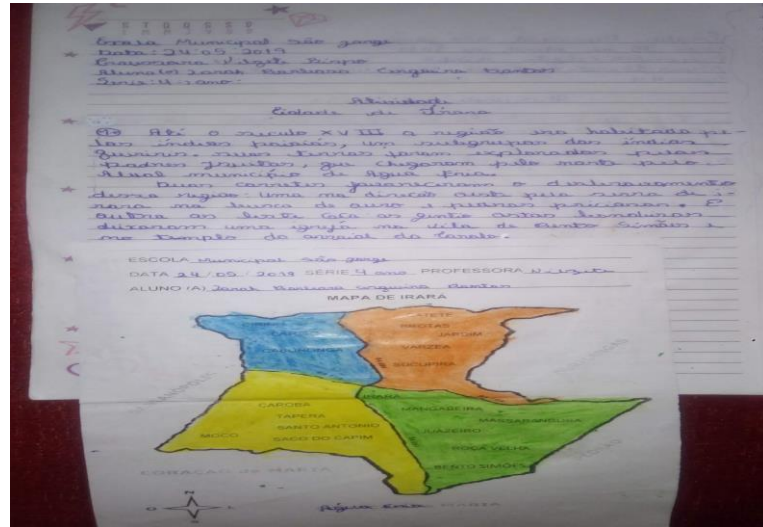 Escola Municipal São Jorge
Data: 24-05-2019
Professora Nilzete
Aluna(o) Sarah Barbara Cerqueira Santos
Serie: 4º ano
Atividade
Cidade de Irara
Até o seculo XVIII a região era habitada pe-
las índias paiaiás, um subgrupas das índias
suas terras foram exploradas pelos
Padres Jesuítas, que chegaram pelo norte pelo
Atual município de Água Fria.
Duas correntes favoreceram o desbravamento
dessa região uma na direção oeste pela serra de i-
rara na busca de ouro e pedras preciosas. E
outra ao leste caça ao gentio
deixaram uma igreja na vila de Bento Simões e
no templo do arraial da Caroba.
ESCOLA Municipal São Jorge
DATA 24/05/2019 SERIE 4 ano PROFESSORA Nilzete
ALUNO (A) Sarah Barbara Cerqueira Santos
MAPA DE IRARÁ
BROTAS
JARDIM
VARZEA
SUCUPIRA
IRARA
CAROBA
TAPERA
SANTO ANTONIO
MOCO
SACO DO CAPIM
MANGABEIRA
MASSARANDUBA
JUAZEIRO
ROÇA VELHA
BENTO SIMÕES
CORAÇÃO DE MARIA
N
O
L
S
Água Fria